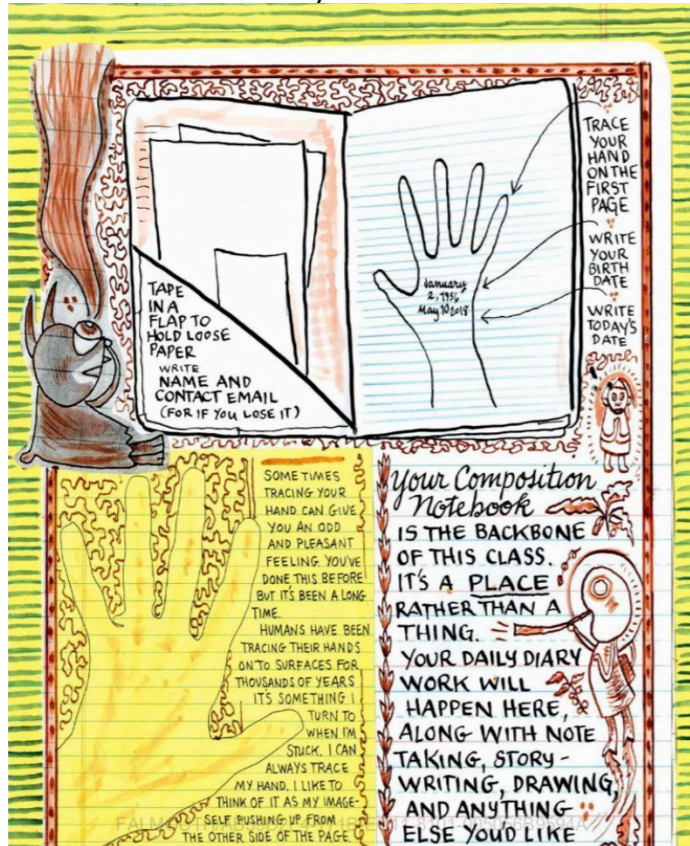 TRACE
YOUR
HAND
ON THE
FIRST
PAGE
WRITE
YOUR
BIRTH
DATE
WRITE
TODAY'S
DATE
January
2, 1956
May 10 2018
TAPE
IN A
FLAP TO
HOLD LOOSE
PAPER
WRITE
NAME AND
CONTACT EMAIL
(FOR IF YOU LOSE IT)
SOME TIMES
TRACING YOUR
HAND CAN GIVE
YOU AN ODD
AND PLEASANT
FEELING. YOU'VE
DONE THIS BEFORE
BUT IT'S BEEN A LONG
TIME.
HUMANS HAVE BEEN
TRACING THEIR HANDS
ONTO SURFACES FOR
THOUSANDS OF YEARS
IT'S SOMETHING I
TURN TO
WHEN I'M
STUCK. I CAN
ALWAYS TRACE
MY HAND. I LIKE TO
THINK OF IT AS MY IMAGE-
SELF PUSHING UP FROM
THE OTHER SIDE OF THE PAGE.
Your Composition
Notebook
IS THE BACKBONE
OF THIS CLASS.
IT'S A PLACE
RATHER THAN A
THING.
YOUR DAILY DIARY
WORK WILL
HAPPEN HERE,
ALONG WITH NOTE
TAKING, STORY-
WRITING, DRAWING,
AND ANYTHING
ELSE YOU'D LIKE